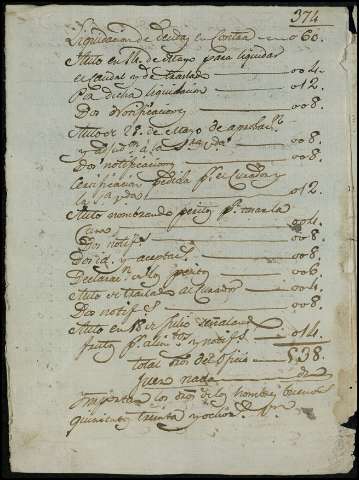 374
Liquidacion de deudas en contra 060.
Auto en 14 de Mayo para liquidar
el caudal y de traslado 004.
Pa dicha liquidacion 012.
Dos notificaciones 008.
Auto en 28 de Mayo de aprobacn
008.
Dos notificaciones 008.
Certificacion pedida pr el Curador y
012.
Auto nombrando peritos pa
004.
Dos notifs 008.
Dos id. y aceptacn 008.
Declaracn de los peritos 006.
Auto en traslado al Curador 004.
Dos notifs 008.
Auto en 18 de Julio señalando
frutos pa alimtos y notifs 014.
total dros del oficio 538.
fuera nada
Importan los dros de los nombres buenos
quinientos treinta y ocho